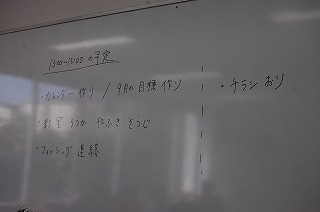 13:00~15:00 の予定
・カレンダー作り / 9月の目標作り
・教室 ろうか ふき そうじ
・フィッシング 連絡
・チラシおり